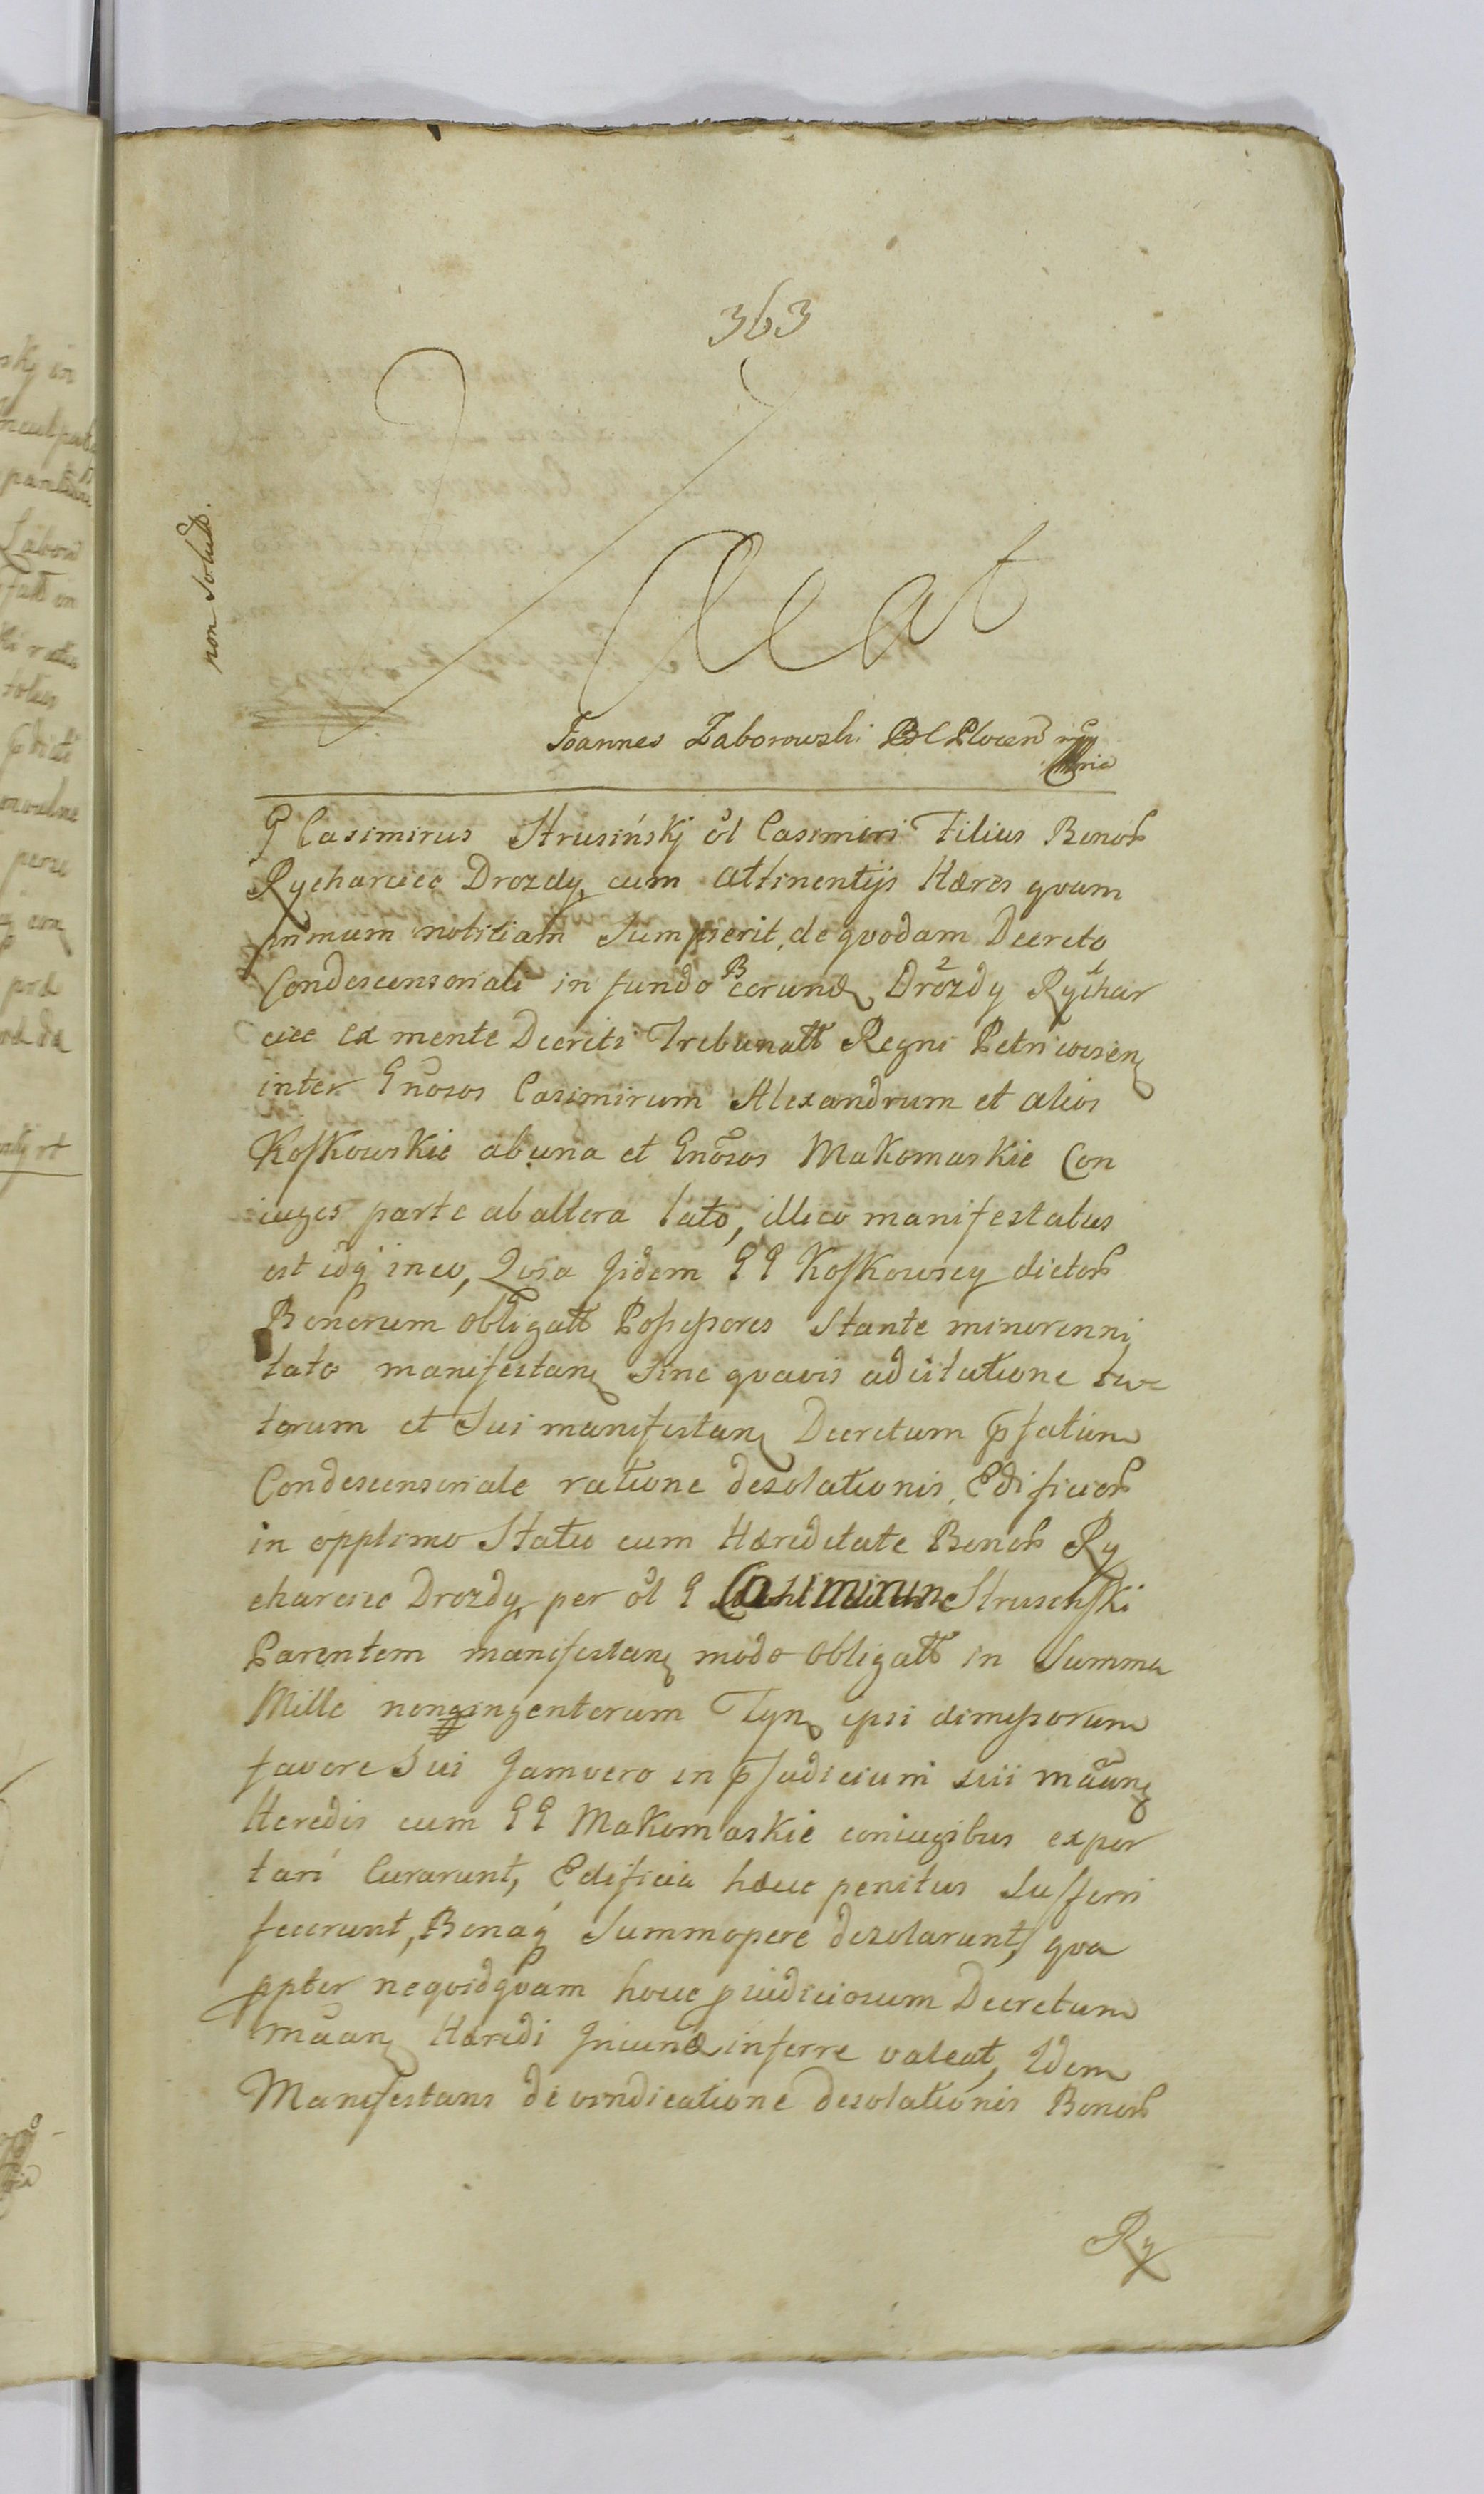 363
non Solut.
leat
Joannes Zaborowski BC Plocen mpp
G Casimirus Strusiński ol Casimiri Filius Bonor
Rycharcice Drozdy cum attinentijs Hæres quam
primum notitiam Sumpserit, de quodam Decreto
Condescensoriali in fundo B eorund Drozdy Rychar
cice ex mente Decreti Tribunalt Regni Petricovien
inter Gnosos Casimirum Alexandrum et alios
Koskowskie ab una et Gnosos Makomaskie Con
iuges parte ab altera lato, illico manifestatus
est idq in eo, Quia Jidem GG Koskowscy dictor
Bonorum obligatt Possessores Stante minorenni
tate manifestan sine quavis adcitatione tu
torum et Sui manifestan Decretum pfatum
Condescensoriale ratione desolationis Edificior
in opptimo Statu cum Hæreditate Bonor Ry
charcice Drozdy per ol G Casimirum Strusenski
Parentem manifestan modo obligatt in Summa
Mille nongingentorum Tyn ipsi dimissorum
favore Sui Jamvero in pjudicium sui maan
Heredis cum GG Makomaskie coniugibus expor
tari Curarunt, Edificia hæc penitus Sufferri
fecerunt, Bonaq Summopere desolarunt, qua
ppter ne quidquam hocce pjudiciosum Decretum
maan Hæredi Jncund inferre valeat, Idem
Manifestans de vindicatione desolationis Bonor
Ry